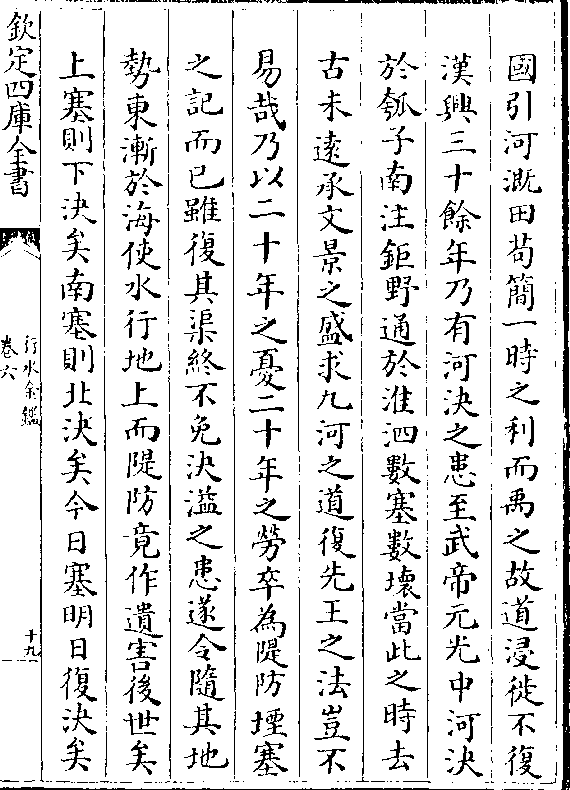 國引河溉田苟簡一時之利而禹之故道浸徙不復
漢興三十餘年乃有河決之患至武帝元光中河決
於瓠子南注鉅野通於淮泗數塞數壞當此之時去
古未遠承文景之盛求九河之道復先王之法豈不
易哉乃以二十年之憂二十年之勞卒為隄防堙塞
之記而已雖復其渠終不免決溢之患遂令隨其地
勢東漸於海使水行地上而隄防竟作遺害後世矣
上塞則下決矣南塞則北決矣今日塞明日復決矣
欽定四庫全書
行水金鑑
卷六
十九